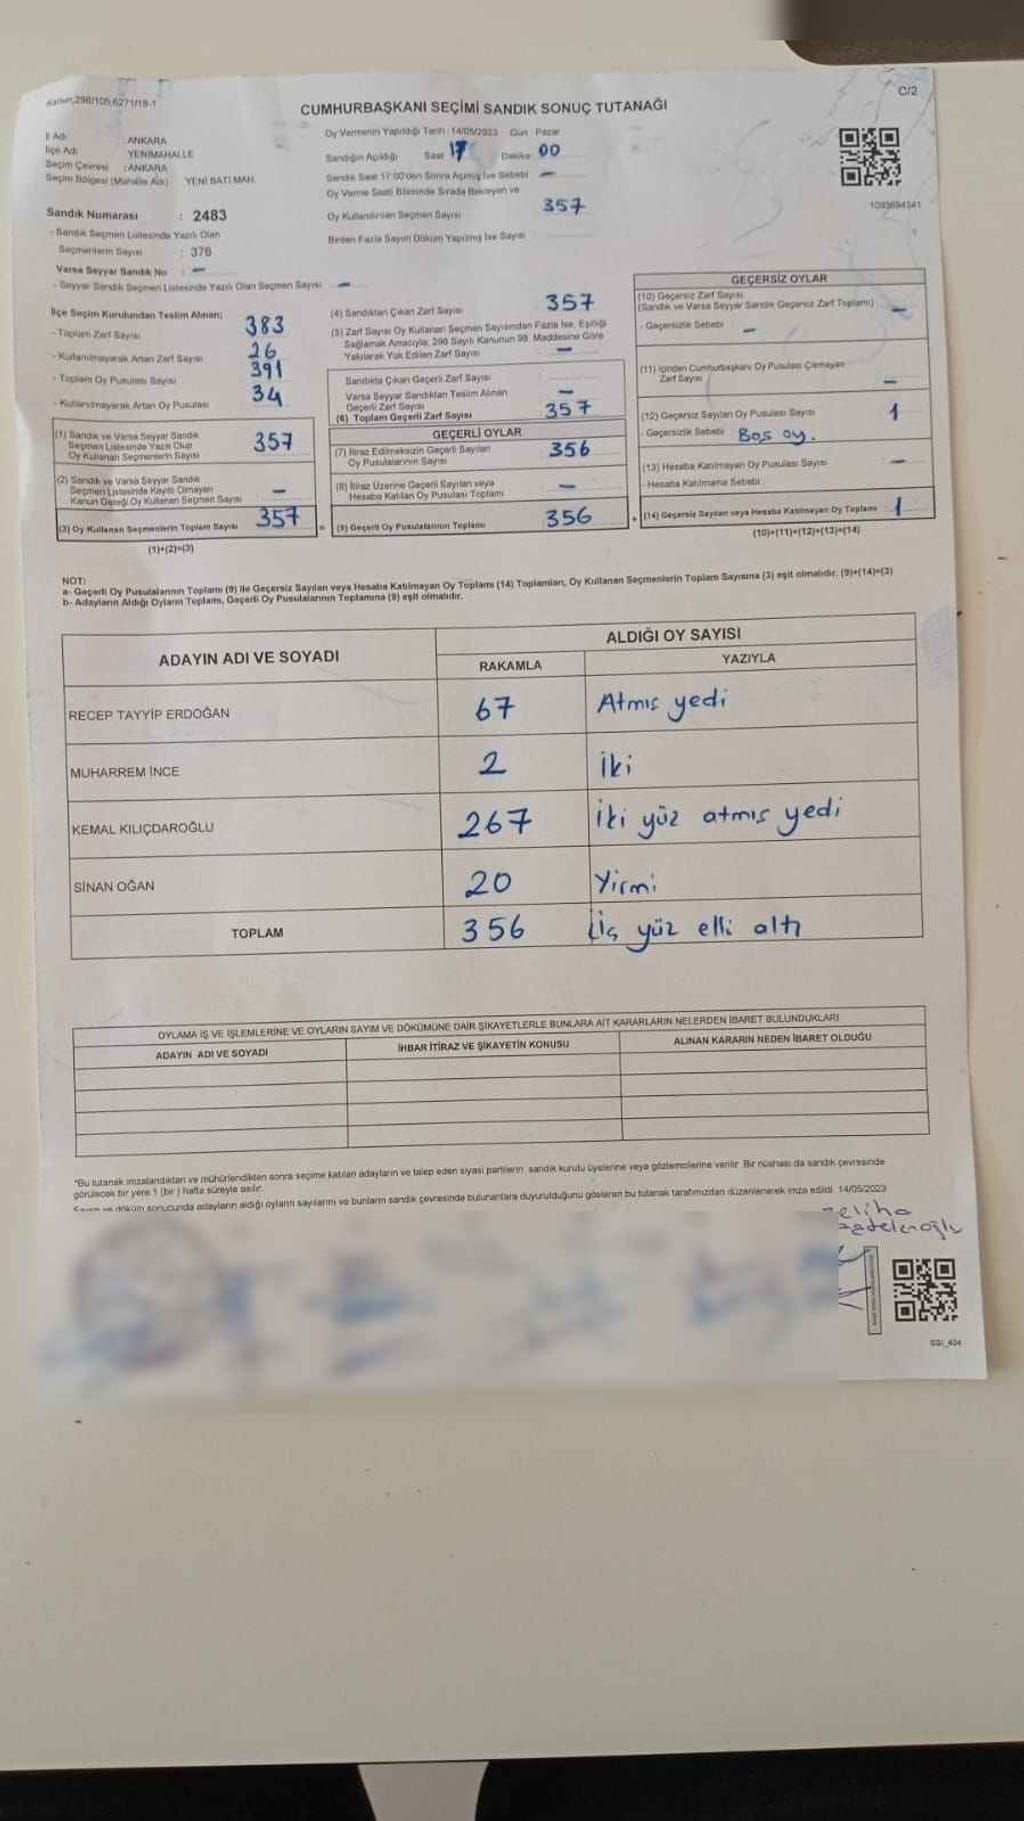 C/2
CUMHURBAŞKANI SEÇİMİ SANDIK SONUÇ TUTANAĞI
İl Adı : ANKARA
İlçe Adı YENİMAHALLE
Seçim Çevresi : ANKARA
Seçim Bölgesi (Mahalle Adı) YENİ BATI MAH.
Oy Vermenin Yapıldığı Tarih : 14/05/2023 Gün : Pazar
Sandığın Açıldığı Saat 17 Dakika 00
Sandık Saat 17:00'den Sonra Açılmış İse Sebebi —
Oy Verme Saati Bitiminde Sırada Bekleyen ve
Oy Kullandırılan Seçmen Sayısı 357
Birden Fazla Sayım Döküm Yapılmış İse Sayısı
1093694341
Sandık Numarası : 2483
- Sandık Seçmen Listesinde Yazılı Olan
Seçmenlerin Sayısı : 376
Varsa Seyyar Sandık No : —
- Seyyar Sandık Seçmen Listesinde Yazılı Olan Seçmen Sayısı —
İlçe Seçim Kurulundan Teslim Alınan;
- Toplam Zarf Sayısı 383
- Kullanılmayarak Artan Zarf Sayısı 26
- Toplam Oy Pusulası Sayısı 391
- Kullanılmayarak Artan Oy Pusulası 34
(1) Sandık ve Varsa Seyyar Sandık
Seçmen Listesinde Yazılı Olup
Oy Kullanan Seçmenlerin Sayısı 357
(2) Sandık ve Varsa Seyyar Sandık
Seçmen Listesinde Kayıtlı Olmayan
Kanun Gereği Oy Kullanan Seçmen Sayısı —
(3) Oy Kullanan Seçmenlerin Toplam Sayısı 357
(1)+(2)=(3)
(4) Sandıktan Çıkan Zarf Sayısı 357
(5) Zarf Sayısı Oy Kullanan Seçmen Sayısından Fazla İse, Eşitliği
Sağlamak Amacıyla; 298 Sayılı Kanunun 98. Maddesine Göre
Yakılarak Yok Edilen Zarf Sayısı —
Sandıkta Çıkan Geçerli Zarf Sayısı
Varsa Seyyar Sandıktan Teslim Alınan
Geçerli Zarf Sayısı —
(6) Toplam Geçerli Zarf Sayısı 357
GEÇERLİ OYLAR
(7) İtiraz Edilmeksizin Geçerli Sayılan
Oy Pusulalarının Sayısı 356
(8) İtiraz Üzerine Geçerli Sayılan veya
Hesaba Katılan Oy Pusulası Toplamı —
= (9) Geçerli Oy Pusulalarının Toplamı 356
GEÇERSİZ OYLAR
(10) Geçersiz Zarf Sayısı
(Sandık ve Varsa Seyyar Sandık Geçersiz Zarf Toplamı) —
- Geçersizlik Sebebi : —
(11) İçinden Cumhurbaşkanı Oy Pusulası Çıkmayan
Zarf Sayısı —
(12) Geçersiz Sayılan Oy Pusulası Sayısı 1
- Geçersizlik Sebebi Boş oy.
(13) Hesaba Katılmayan Oy Pusulası Sayısı —
- Hesaba Katılmama Sebebi :
+ (14) Geçersiz Sayılan veya Hesaba Katılmayan Oy Toplamı : 1
(10)+(11)+(12)+(13)=(14)
NOT:
a- Geçerli Oy Pusulalarının Toplamı (9) ile Geçersiz Sayılan veya Hesaba Katılmayan Oy Toplamı (14) Toplamları, Oy Kullanan Seçmenlerin Toplam Sayısına (3) eşit olmalıdır. (9)+(14)=(3)
b- Adayların Aldığı Oyların Toplamı, Geçerli Oy Pusulalarının Toplamına (9) eşit olmalıdır.
ADAYIN ADI VE SOYADI ALDIĞI OY SAYISI
RAKAMLA YAZIYLA
RECEP TAYYİP ERDOĞAN 67 Atmış yedi
MUHARREM İNCE 2 İki
KEMAL KILIÇDAROĞLU 267 İki yüz atmış yedi
SİNAN OĞAN 20 Yirmi
TOPLAM 356 Üç yüz elli altı
OYLAMA İŞ VE İŞLEMLERİNE VE OYLARIN SAYIM VE DÖKÜMÜNE DAİR ŞİKAYETLERLE BUNLARA AİT KARARLARIN NELERDEN İBARET BULUNDUKLARI
ADAYIN ADI VE SOYADI İHBAR İTİRAZ VE ŞİKAYETİN KONUSU ALINAN KARARIN NEDEN İBARET OLDUĞU
*Bu tutanak imzalandıktan ve mühürlendikten sonra seçime katılan adayların ve talep eden siyasi partilerin sandık kurulu üyelerine veya gözlemcilerine verilir. Bir nüshası da sandık çevresinde
görülecek bir yere 1 (bir) hafta süreyle asılır.
Sayım ve döküm sonucunda adayların aldığı oyların sayılarını ve bunların sandık çevresinde bulunanlara duyurulduğunu gösteren bu tutanak tarafımızdan düzenlenerek imza edildi. 14/05/2023